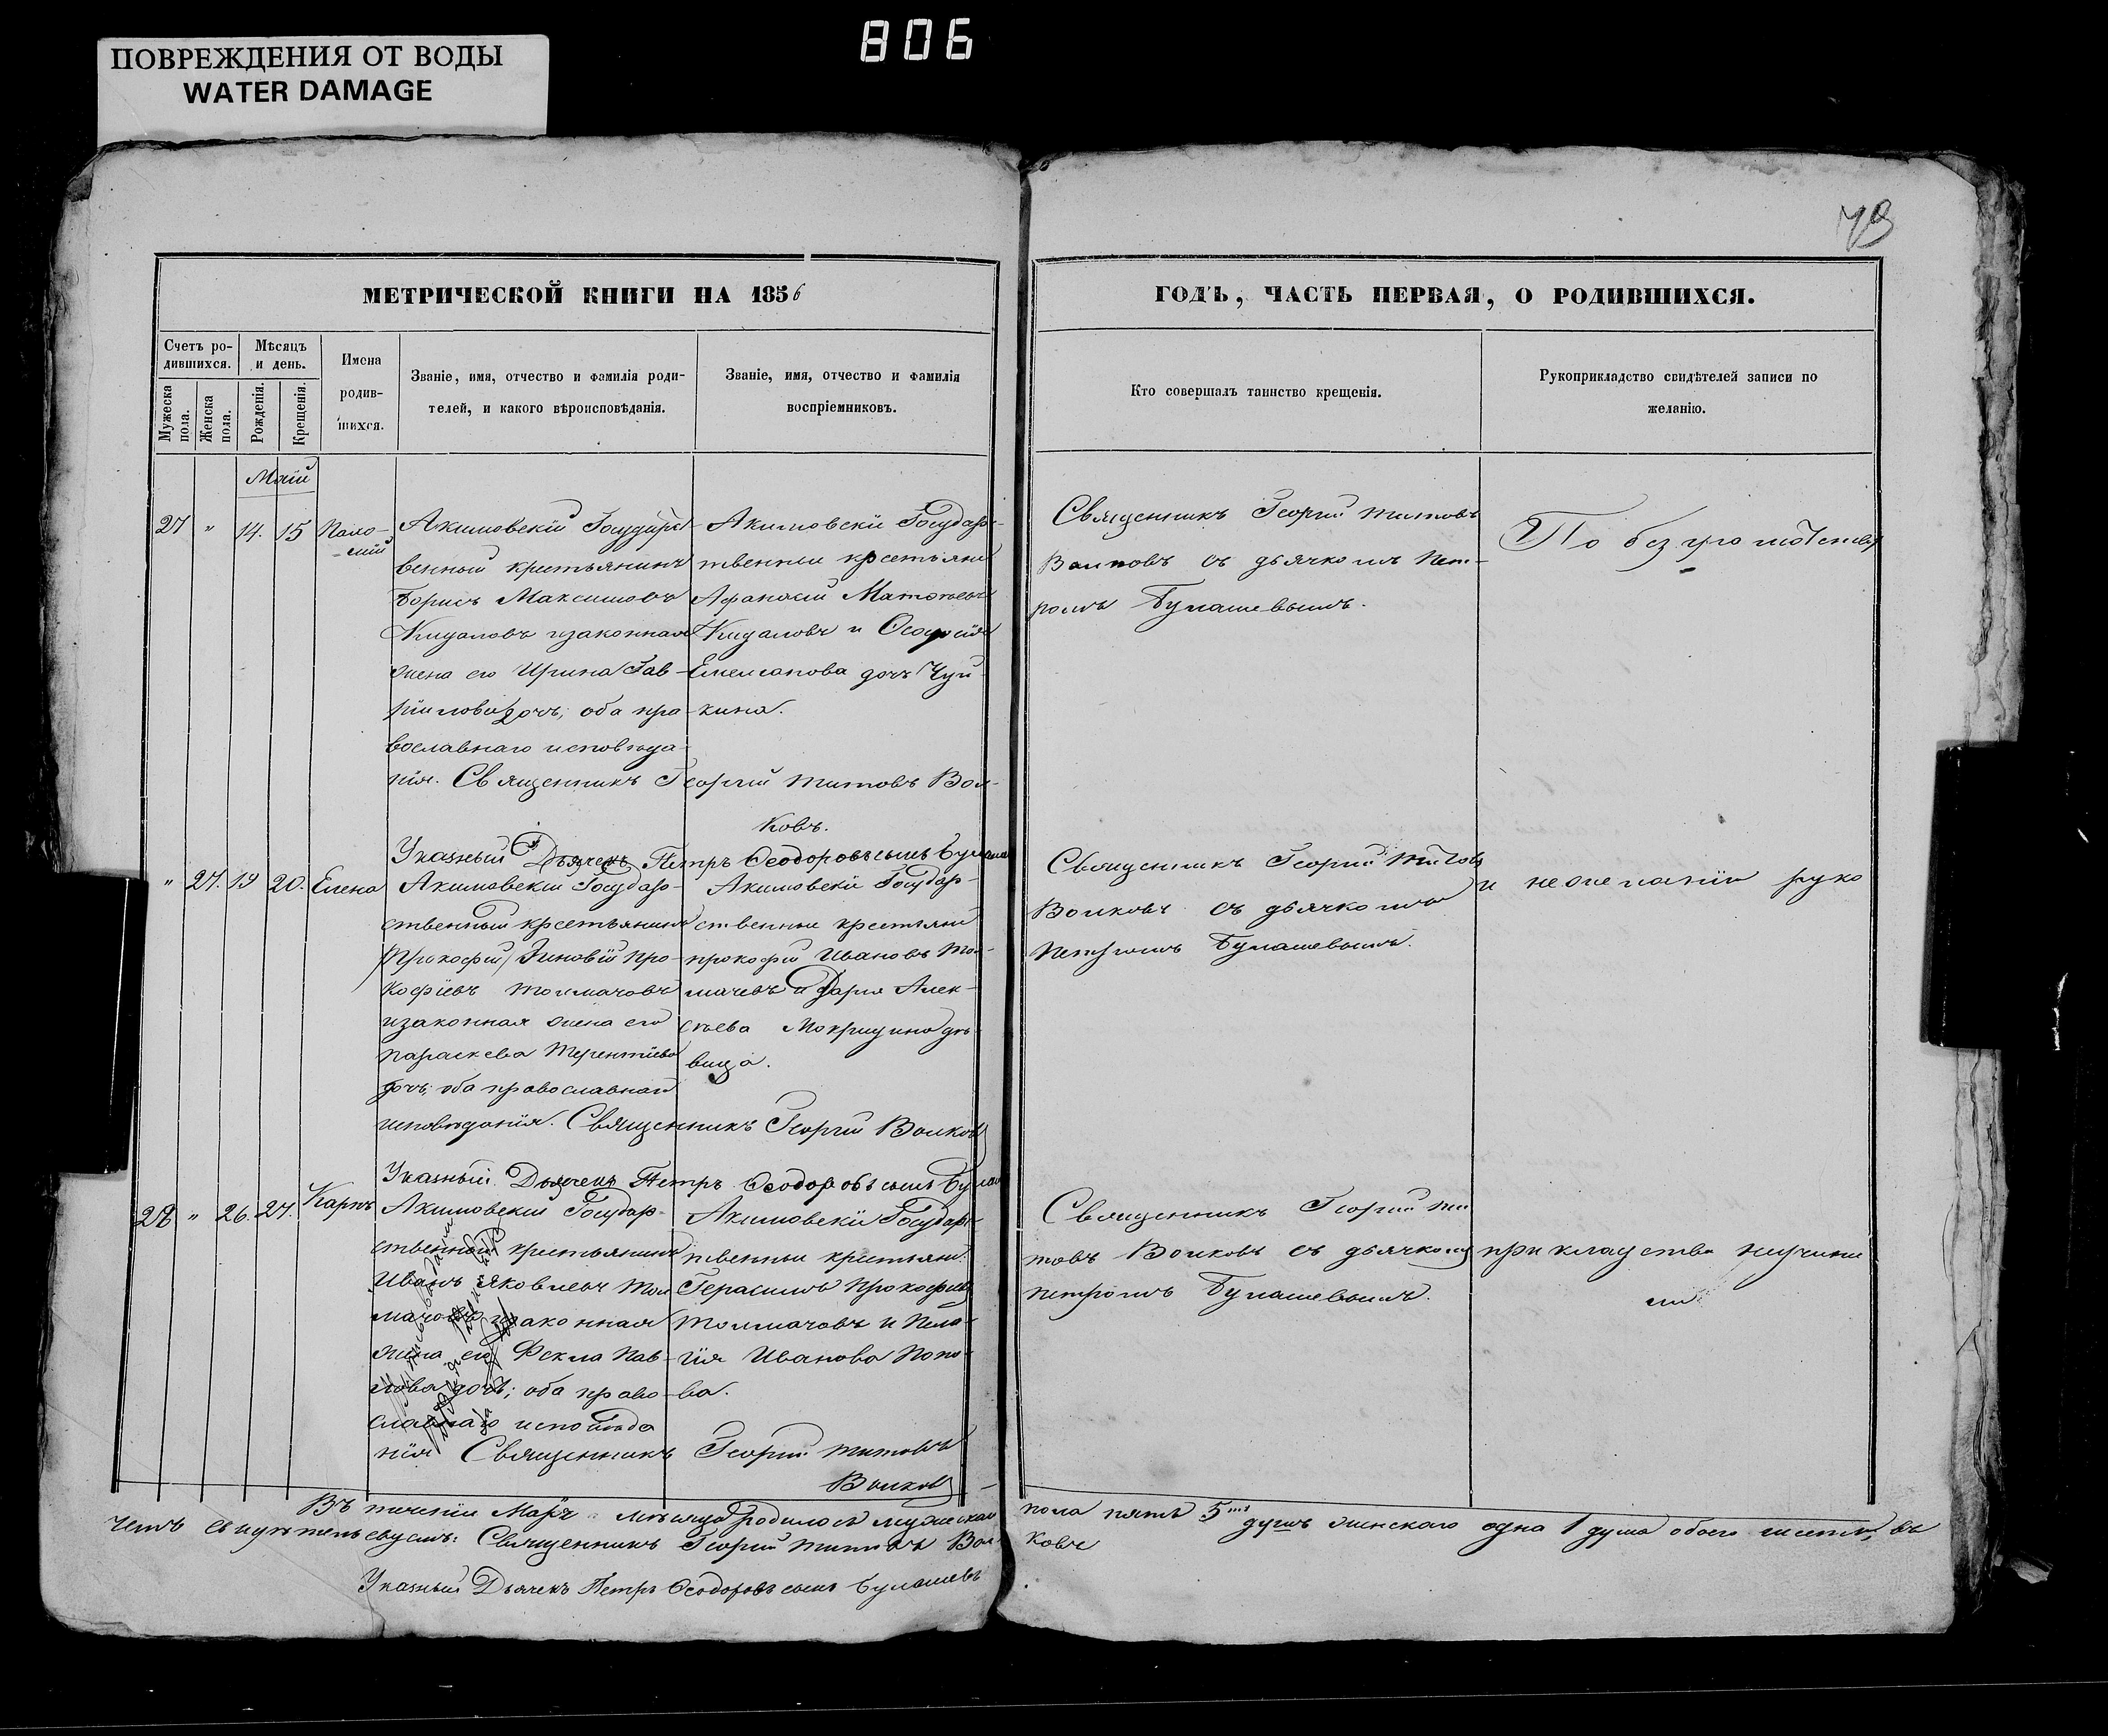 806
ПОВРЕЖДЕНИЯ ОТ ВОДЫ
WATER DAMAGE
79
МЕТРИЧЕСКОЙ КНИГИ НА 1856
ГОДЪ, ЧАСТЬ ПЕРВАЯ, О РОДИВШИХСЯ.
Счетъ ро-
дившихся.
Мужеска пола.
Женска пола.
Мѣсяцъ
и день.
Рожденія.
Крещенія.
Имена
родив-
шихся.
Званіе, имя, отчество и фамилія роди-
телей, и какого вѣроисповѣданія.
Званіе, имя, отчество и фамилія
воспріемниковъ.
Кто совершалъ таинство крещенія.
Рукоприкладство свидѣтелей записи по
желанію.
Маій
27 " 14. 15
Акимовскій Государст
венный крестьянинъ
Борисъ Максимовъ
изаконная
жена его Ирина Гав-
рііловадочь; оба пра-
вославнаго исповѣда-
нія. Священникъ Георгій Титовъ Вол-
ковъ.
Указный Дьячекъ Петръ Ѳеодоровъ сынъ
Акимовскіи Государ-
твенныи крестьяни
Афанасій
и
дочь Чуй-
кина.
Священникъ Георгій Титовъ
Волковъ съ дьячкомъ Пет-
ромъ Булашевымъ.
По безграмотству
" 27. 19 20. Елена
Акимовскій Государ-
ственный крестьянинъ
Прокофій Зиновій Про-
кофіевъ Толмачовъ
изаконная жена его
Параскева Терентіева
дочь; оба православнаго
исповѣданія. Священникъ Георгій Волковъ
Указный Дьячекъ Петръ Ѳеодоровъ сынъ
Акимовскіи Государ-
ственные крестьяни
Прокофій Ивановъ Тол-
мачевъ и Дарія Алек-
сѣева Мокридина дѣ-
вица.
Священникъ Георгій Титовъ
Волковъ съ дьячкомъ
Петромъ Булашевымъ.
и нежеланію руко
28 " 26. 27. Карпъ
Акимовскій Государ-
ственный крестьянинъ
Иванъ Яковлевъ Тол
мачовъ изаконная
жена его Фекла Пав-
лова дочь; оба право-
славнаго исповѣда
нія Священникъ Георгій Титовъ
Волковъ
Акимовскіи Государс-
твенныи крестьяни
Герасимъ Прокофіевъ
Толмачовъ и Пела-
гія Иванова Попо-
ва.
Священникъ Георгій Ти
товъ Волковъ съ дьячкомъ
Петромъ Булашевымъ.
прикладства неучини
ли
Въ теченіи мѣсяца родилось мужескаго пола пять 5 душъ женскаго одна 1 душа обоего шесть, въ
чемъ свидѣтельствуемъ: Священникъ Георгій Титовъ Вол- ковъ
Указный Дьячекъ Петръ Ѳеодоровъ сынъ Булашевъ